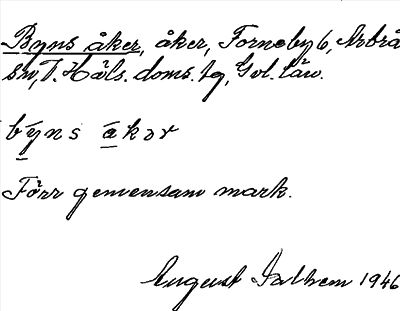 Byns åker, åker, Forneby 6, Arbrå
sn, V. Häls. doms. tg, Gvl. län.
byns åkər
Förr gemensam mark.
August Isthem 1946